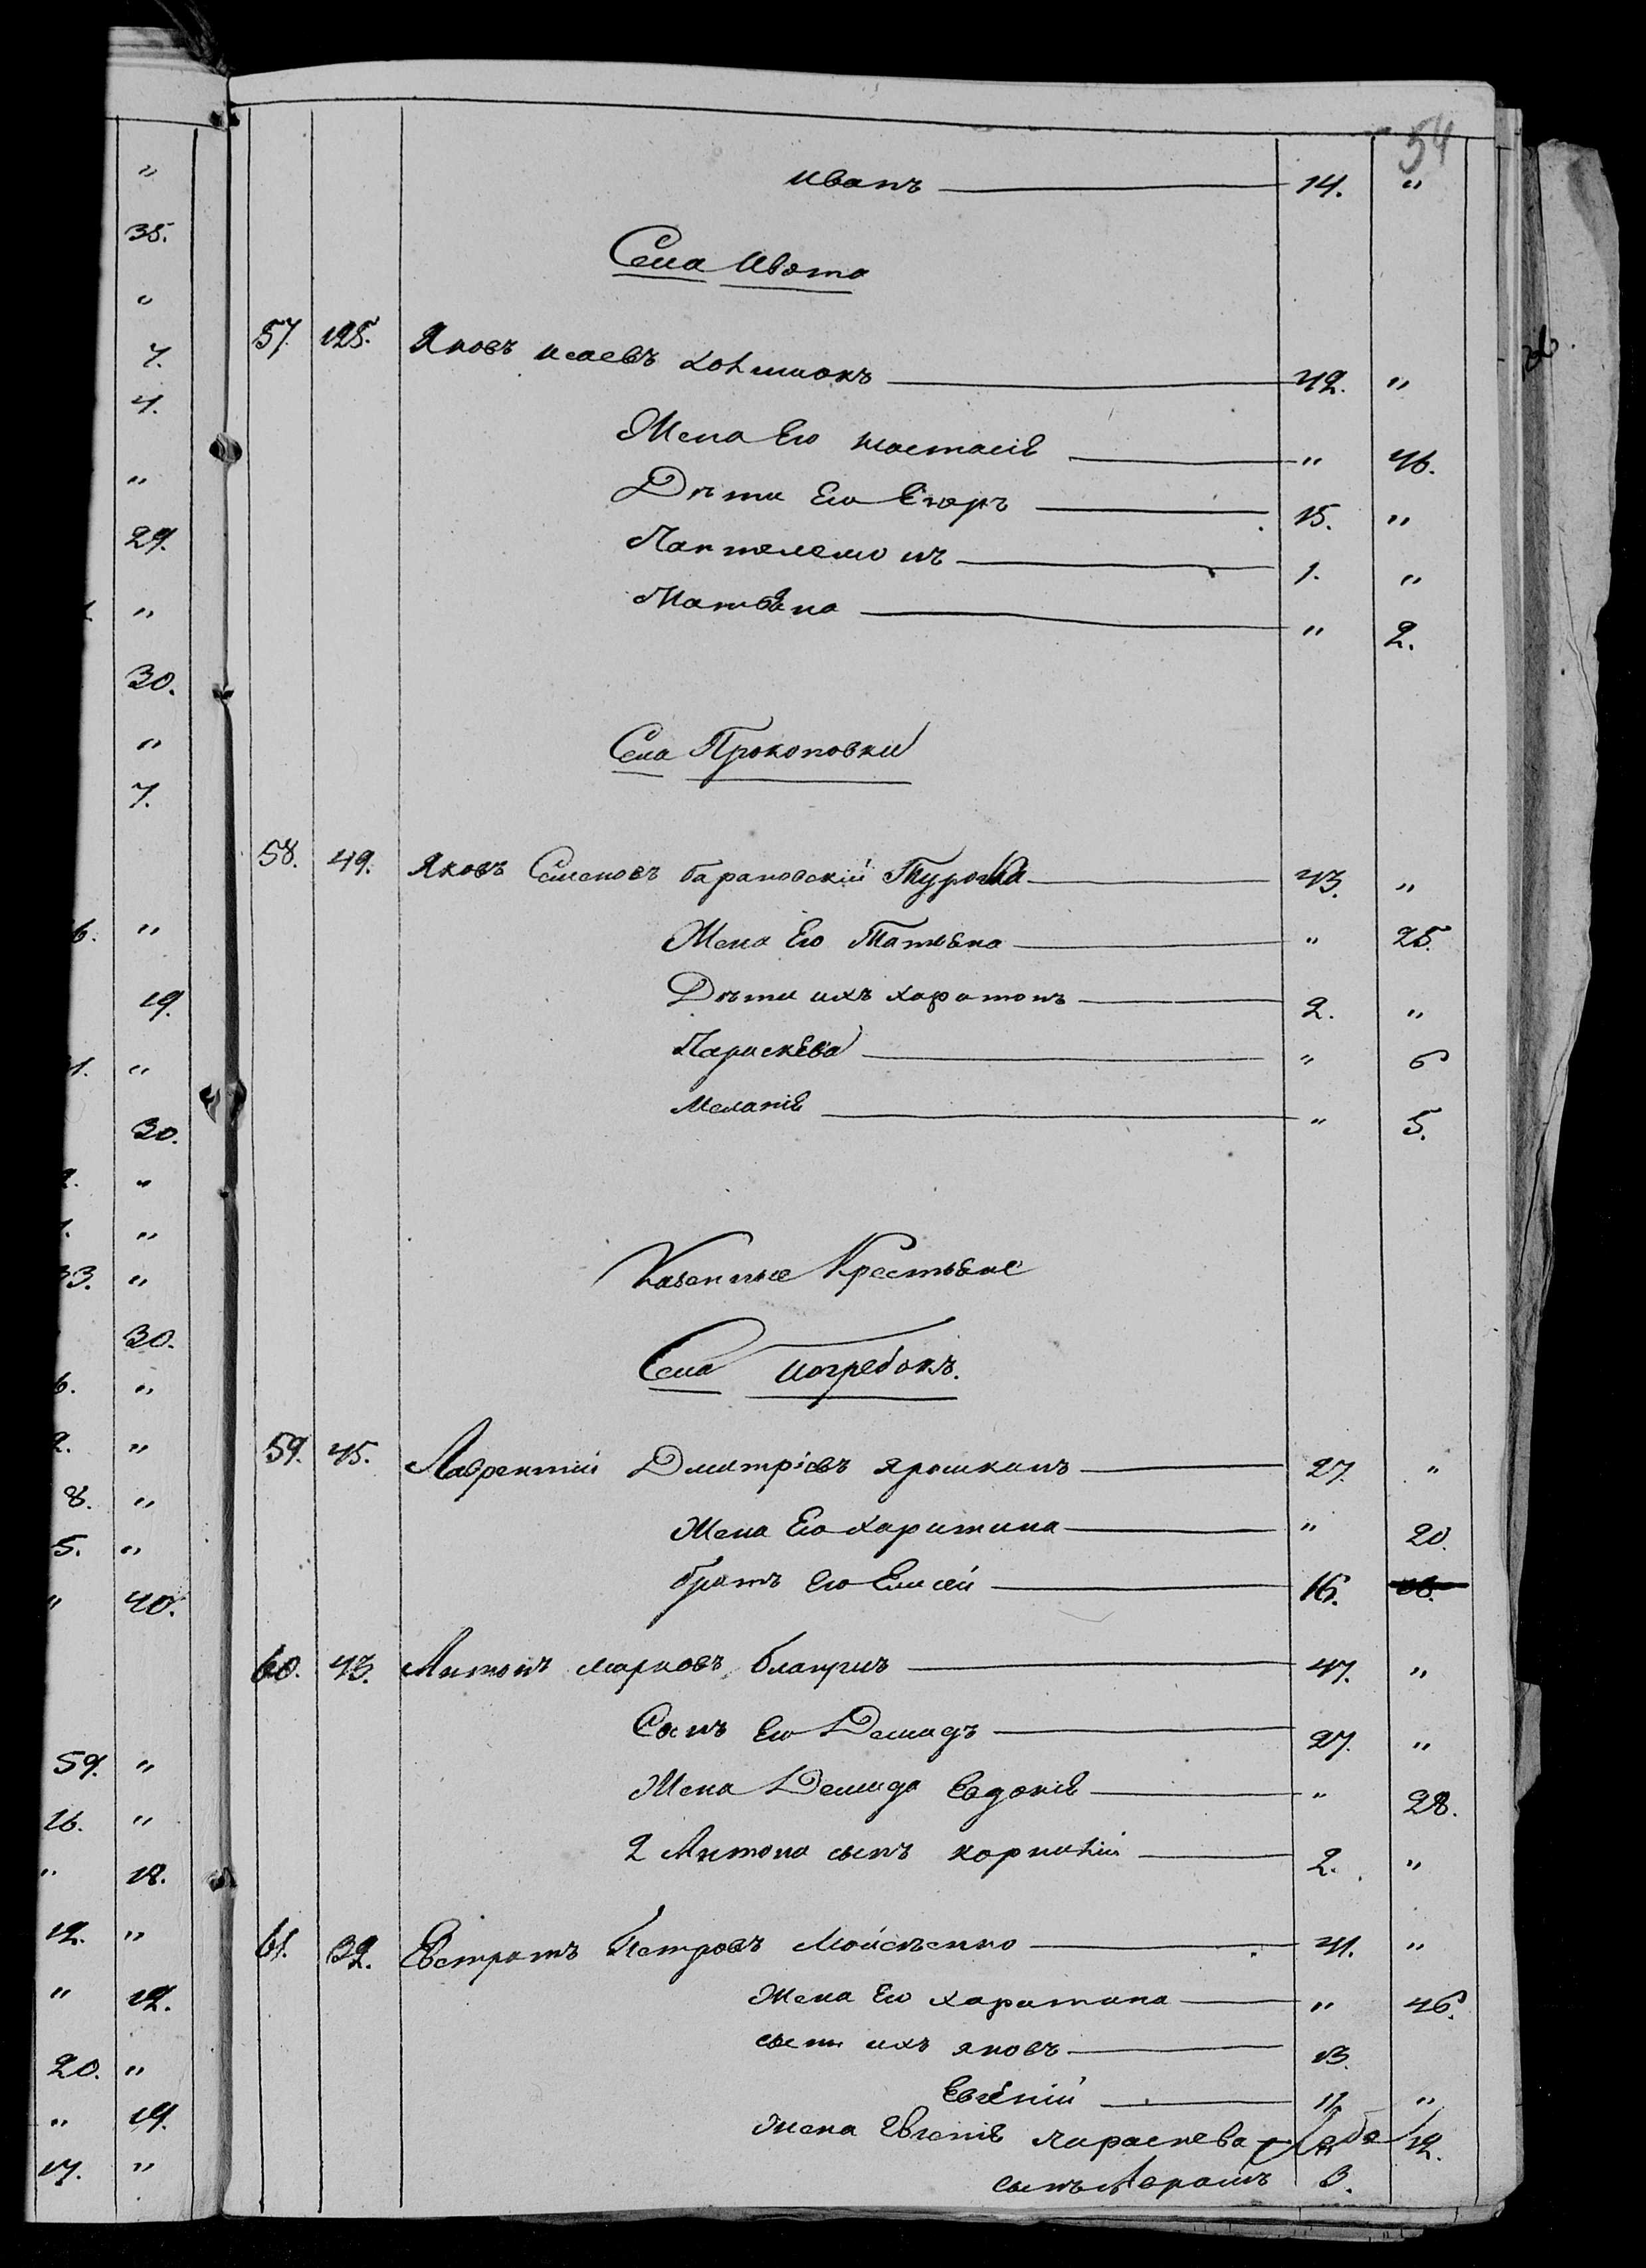 54
Иванъ 14. "
Села Ивота
57. 125. Яковъ исаевъ 42. "
Жена Его Настасія " 46.
Дѣти Его Егоръ 15. "
Пантелемонъ 1. "
" 2.
Села Прокоповки
58. 49. Яковъ Семеновъ барановскій 43. "
Жена Его Татьяна " 25.
Дѣти ихъ харитонъ 2. "
Парискева " 6
Меланія " 5.
Казенные Крестьяне
Села погребокъ.
59. 45. Лаврентій Дмитріевъ ярошкинъ 27. "
Жена Его харитина " 20.
братъ Его Елисей 16.
60. 43. Антонъ марковъ 47. "
Сынъ Его Демидъ 27. "
Жена Демида Евдокія " 28.
2 Антона сынъ корнилій 2. "
61. 32. Евстратъ Петровъ Мойсѣенко 41. "
Жена Его харитина " 46.
сыны ихъ яковъ 13.
Евгеній 11. "
Жена Евгенія параскева 12.
сынъ Аврамъ 3.
"
35.
"
7.
4.
"
29.
"
30.
"
7.
"
19.
"
30.
"
"
"
30.
"
"
8. "
5. "
" 40.
59. "
16. "
" 18.
12. "
" 12.
20. "
" 19.
17. "